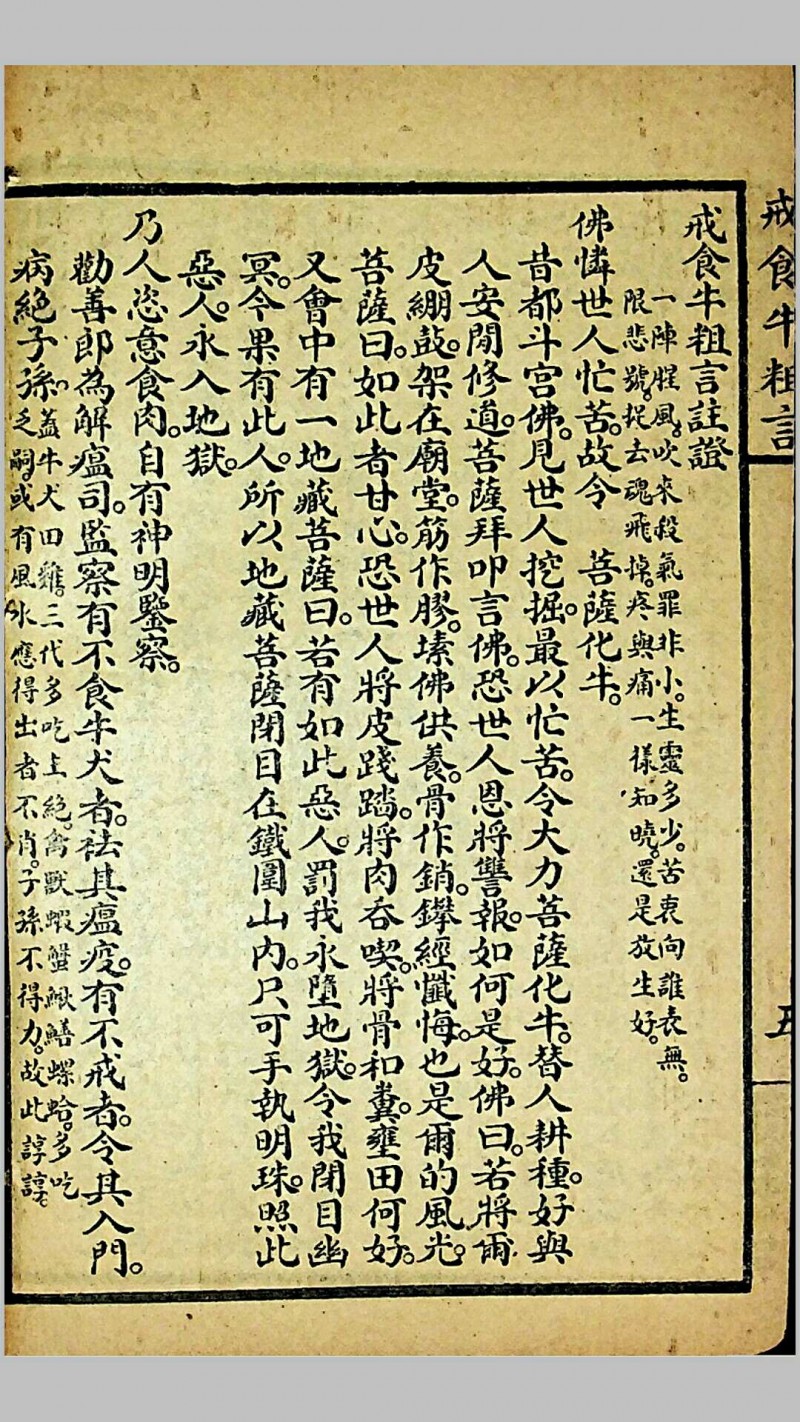 戒食牛粗言
五
戒食牛粗言註證
一陣腥風。吹來殺氣罪非小。生靈多少。苦衷向誰表無。
限悲號。捉去魂飛掉。疼與痛一樣知曉。還是放生好。
佛憐世人忙苦。故令　菩薩化牛。
昔都斗宮佛。見世人挖掘。最以忙苦。令大力菩薩化牛。替人耕種。好與
人安閒修道。菩薩拜叩言佛。恐世人恩將讐報。如何是好。佛曰。若將爾
皮綳鼓。架在廟堂。筋作膠。塐佛供養。骨作銷。鑻經懺悔。也是爾的風光。
菩薩曰。如此者甘心。恐世人將皮踐踏。將肉吞喫。將骨和糞。壅田何好。
又會中有一地藏菩薩曰。若有如此惡人。罰我永墮地獄。令我閉目幽
冥。今果有此人。所以地藏菩薩閉目在鐵圍山內。只可手執明珠。照此
惡人。永入地獄。
乃人恣意食肉。自有神明鑒察。
勸善郎為解瘟司。監察有不食牛犬者。祛其瘟疫。有不戒者。令其入門。
病絕子孫。蓋牛犬田雞。三代多吃主絕。禽獸蝦蟹鰍鱔螺蛤。多吃
乏嗣。或有風水應得出者不肖。子孫不得力。故此諄諄